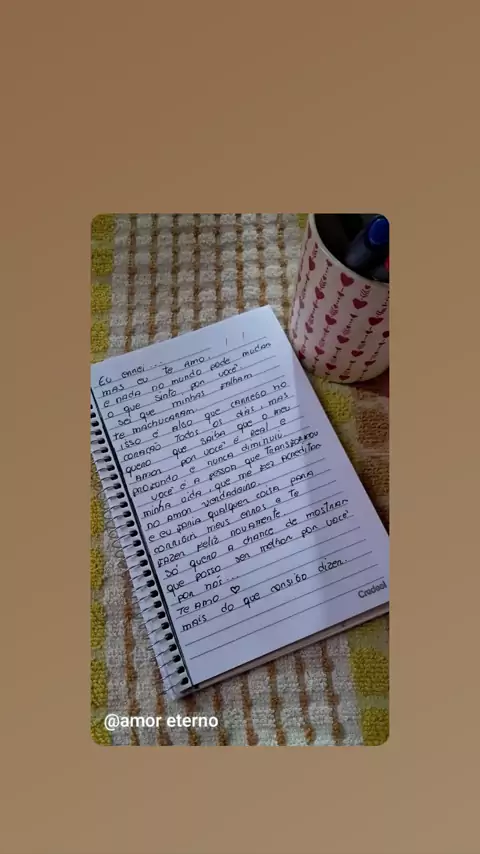 Eu errei...
mas eu te amo,
e nada no mundo pode mudar
o que sinto por você.
Sei que minhas falhas
te machucaram
isso é algo que carrego no
coração todos os dias, mas
quero que saiba que o meu
amor por você é real e
profundo e nunca diminuiu
você é a pessoa que transformou
minha vida, que me fez acreditar
no amor verdadeiro.
e eu faria qualquer coisa para
corrigir meus erros e te
fazer feliz novamente.
Só quero a chance de mostrar
que posso ser melhor por você
por nós...
Te amo ♡
mais do que consigo dizer.
Credeal
@amor eterno